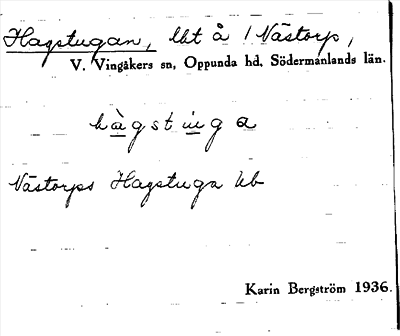 Hagstugan, lht å 1 Nästorp,
V. Vingåkers sn, Oppunda hd, Södermanlands län.
hàgstuga
Nästorps Hagstuga hb
Karin Bergström 1936.